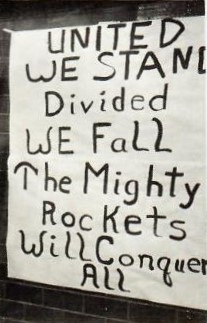 UNITED
WE STAND
Divided
WE Fall
The Mighty
Rockets
Will Conquer
All